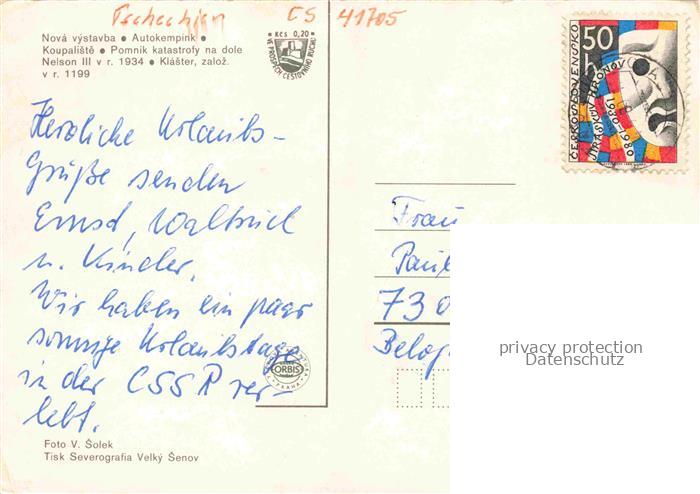 Tschechien CS 41705
Nová výstavba ● Autokempink ●
Koupaliště ● Pomník katastrofy na dole
Nelson III v r. 1934 ● Klášter, založ.
v r. 1199
Kčs 0,20
VE PROSPĚCH CESTOVNÍHO RUCHU
50 h
ČESKOSLOVENSKO
JIRÁSKŮV HRONOV
1930-1980
Herzliche Urlaubs-
Grüße senden
Ernst, Waltraud
u. Kinder.
Wir haben ein paar
sonnige Urlaubstage
in der CSSR ver-
lebt.
Frau
Paul
730
ORBIS
PRAHA
privacy protection
Datenschutz
Foto V. Šolek
Tisk Severografia Velký Šenov